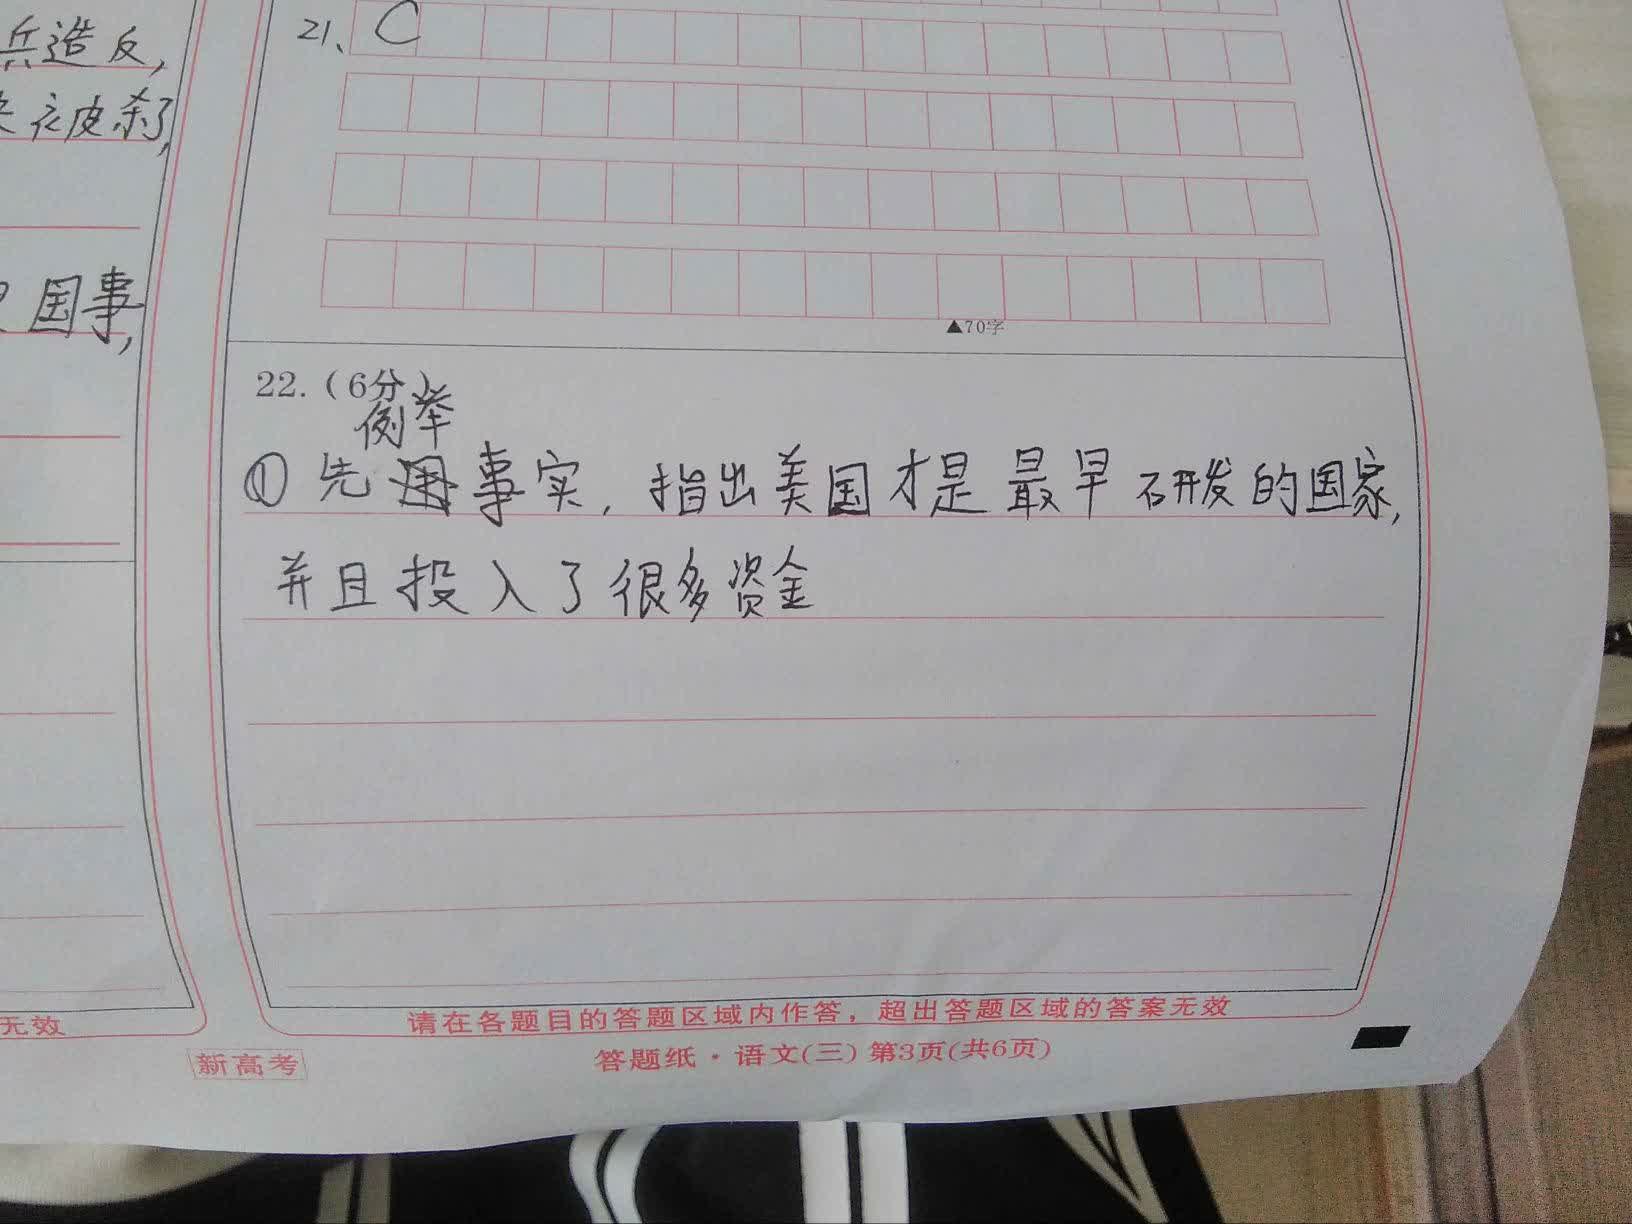 兵造反,
被杀了,
国事,
无效
21、C
▲70字
22.(6分)
例举
①先事实,指出美国才是最早研发的国家,
并且投入了很多资金
请在各题目的答题区域内作答，超出答题区域的答案无效
新高考
答题纸·语文(三) 第3页(共6页)